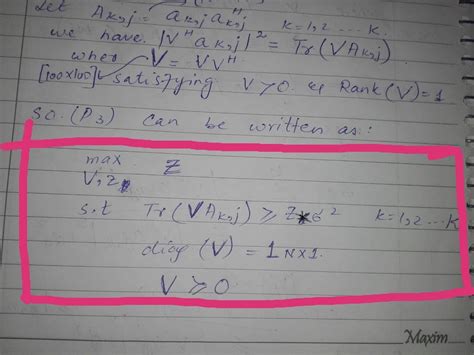 Let A_{k,j} = a_{k,j} a_{k,j}^H k=1,2 ... K.
we have |V^H a_{k,j}|^2 = Tr(VA_{k,j})
wher V = VV^H
[100x100] satisfying V>0 & Rank(V)=1
so. (P3) can be written as:
max Z
V,Z
s.t Tr(VA_{k,j}) ≥ Z σ^2 k=1,2 ... K
diag (V) = 1 N×1.
V ≥ 0
Maxim